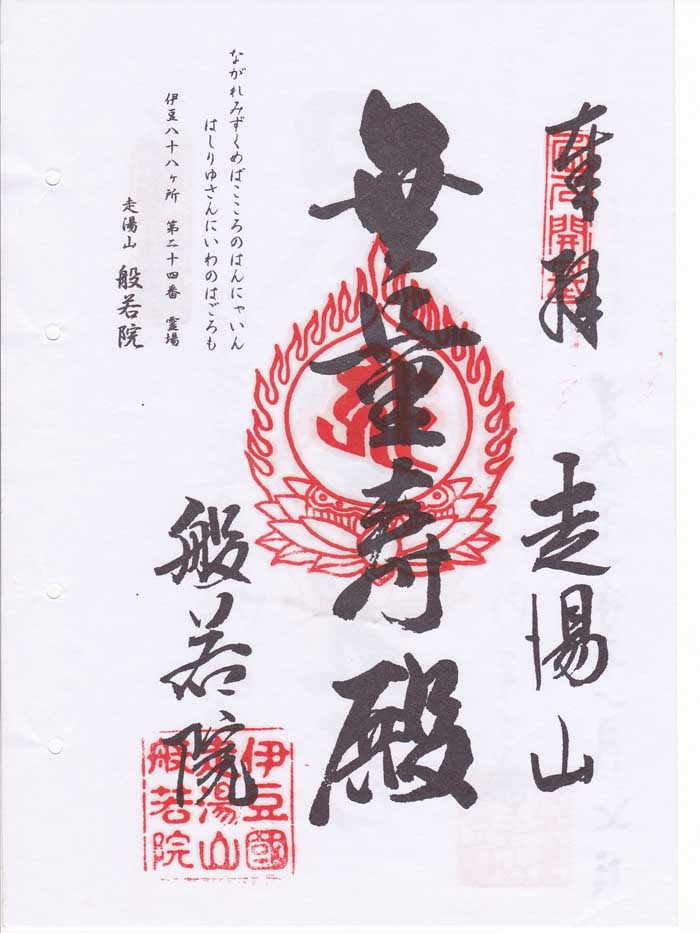 奉拝
走湯山
無量寿殿
般若院
伊豆國
走湯山
般若院
ながれみずくめばこころのはんにゃいん
はしりゆさんにいわのはごろも
伊豆八十八ヶ所 第二十四番 霊場
走湯山 般若院